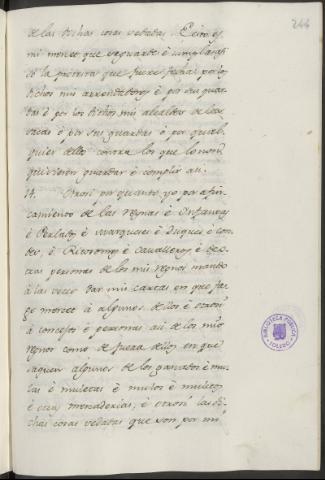 244
de las dichas cosas vedadas. E esto es
mi merced que se guarde é cumpla asi
so la protesta que fuere fechas por los
dichos mis arrendadores é por sus guar
das é por los dichos mis alcaldes de las
sacas é por sus guardas é por qual
quier dellos contra los que lo non
quisieren guardar é complir asi.
14. Otrosi por quanto yo por afin
camiento de las reynas é Infantes
é Perlados é Marqueses é Duques é Con
des, é Ricosomes é Cavalleros é de o
tras personas de los mis regnos mando
á las veces dar mis cartas en que fa
go merced á algunos dellos é otrosi
á concejos é personas asi de los mis
regnos como de fuera dellos en que
saquen algunos de los ganados é mu
las é muletas é mulos é muletos
é otras mercaderias, é otrosi las di
chas cosas vedadas que son por mi
BIBLIOTECA PUBLICA
TOLEDO